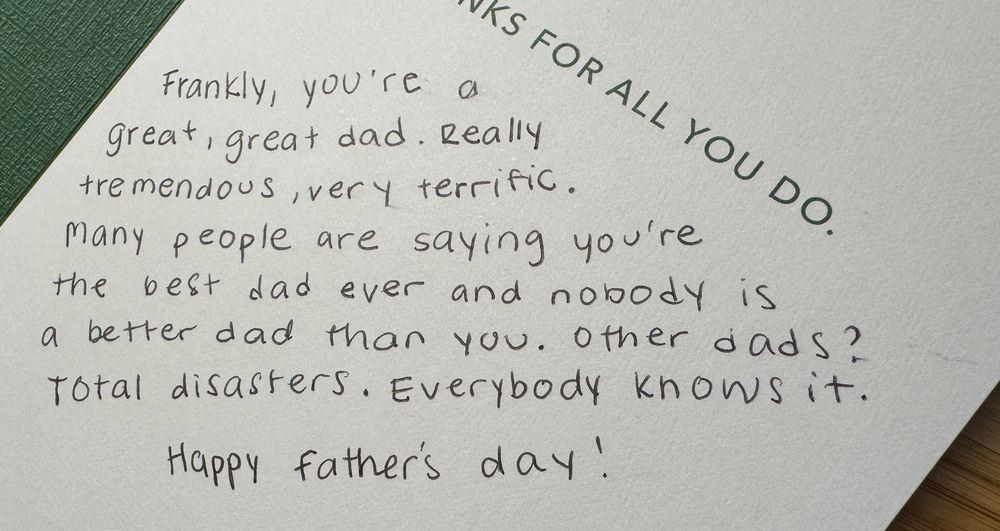 FOR ALL YOU DO.
Frankly, you're a
great, great dad. Really
tremendous, very terrific.
Many people are saying you're
the best dad ever and nobody is
a better dad than you. Other dads?
Total disasters. Everybody knows it.
Happy Father's day!